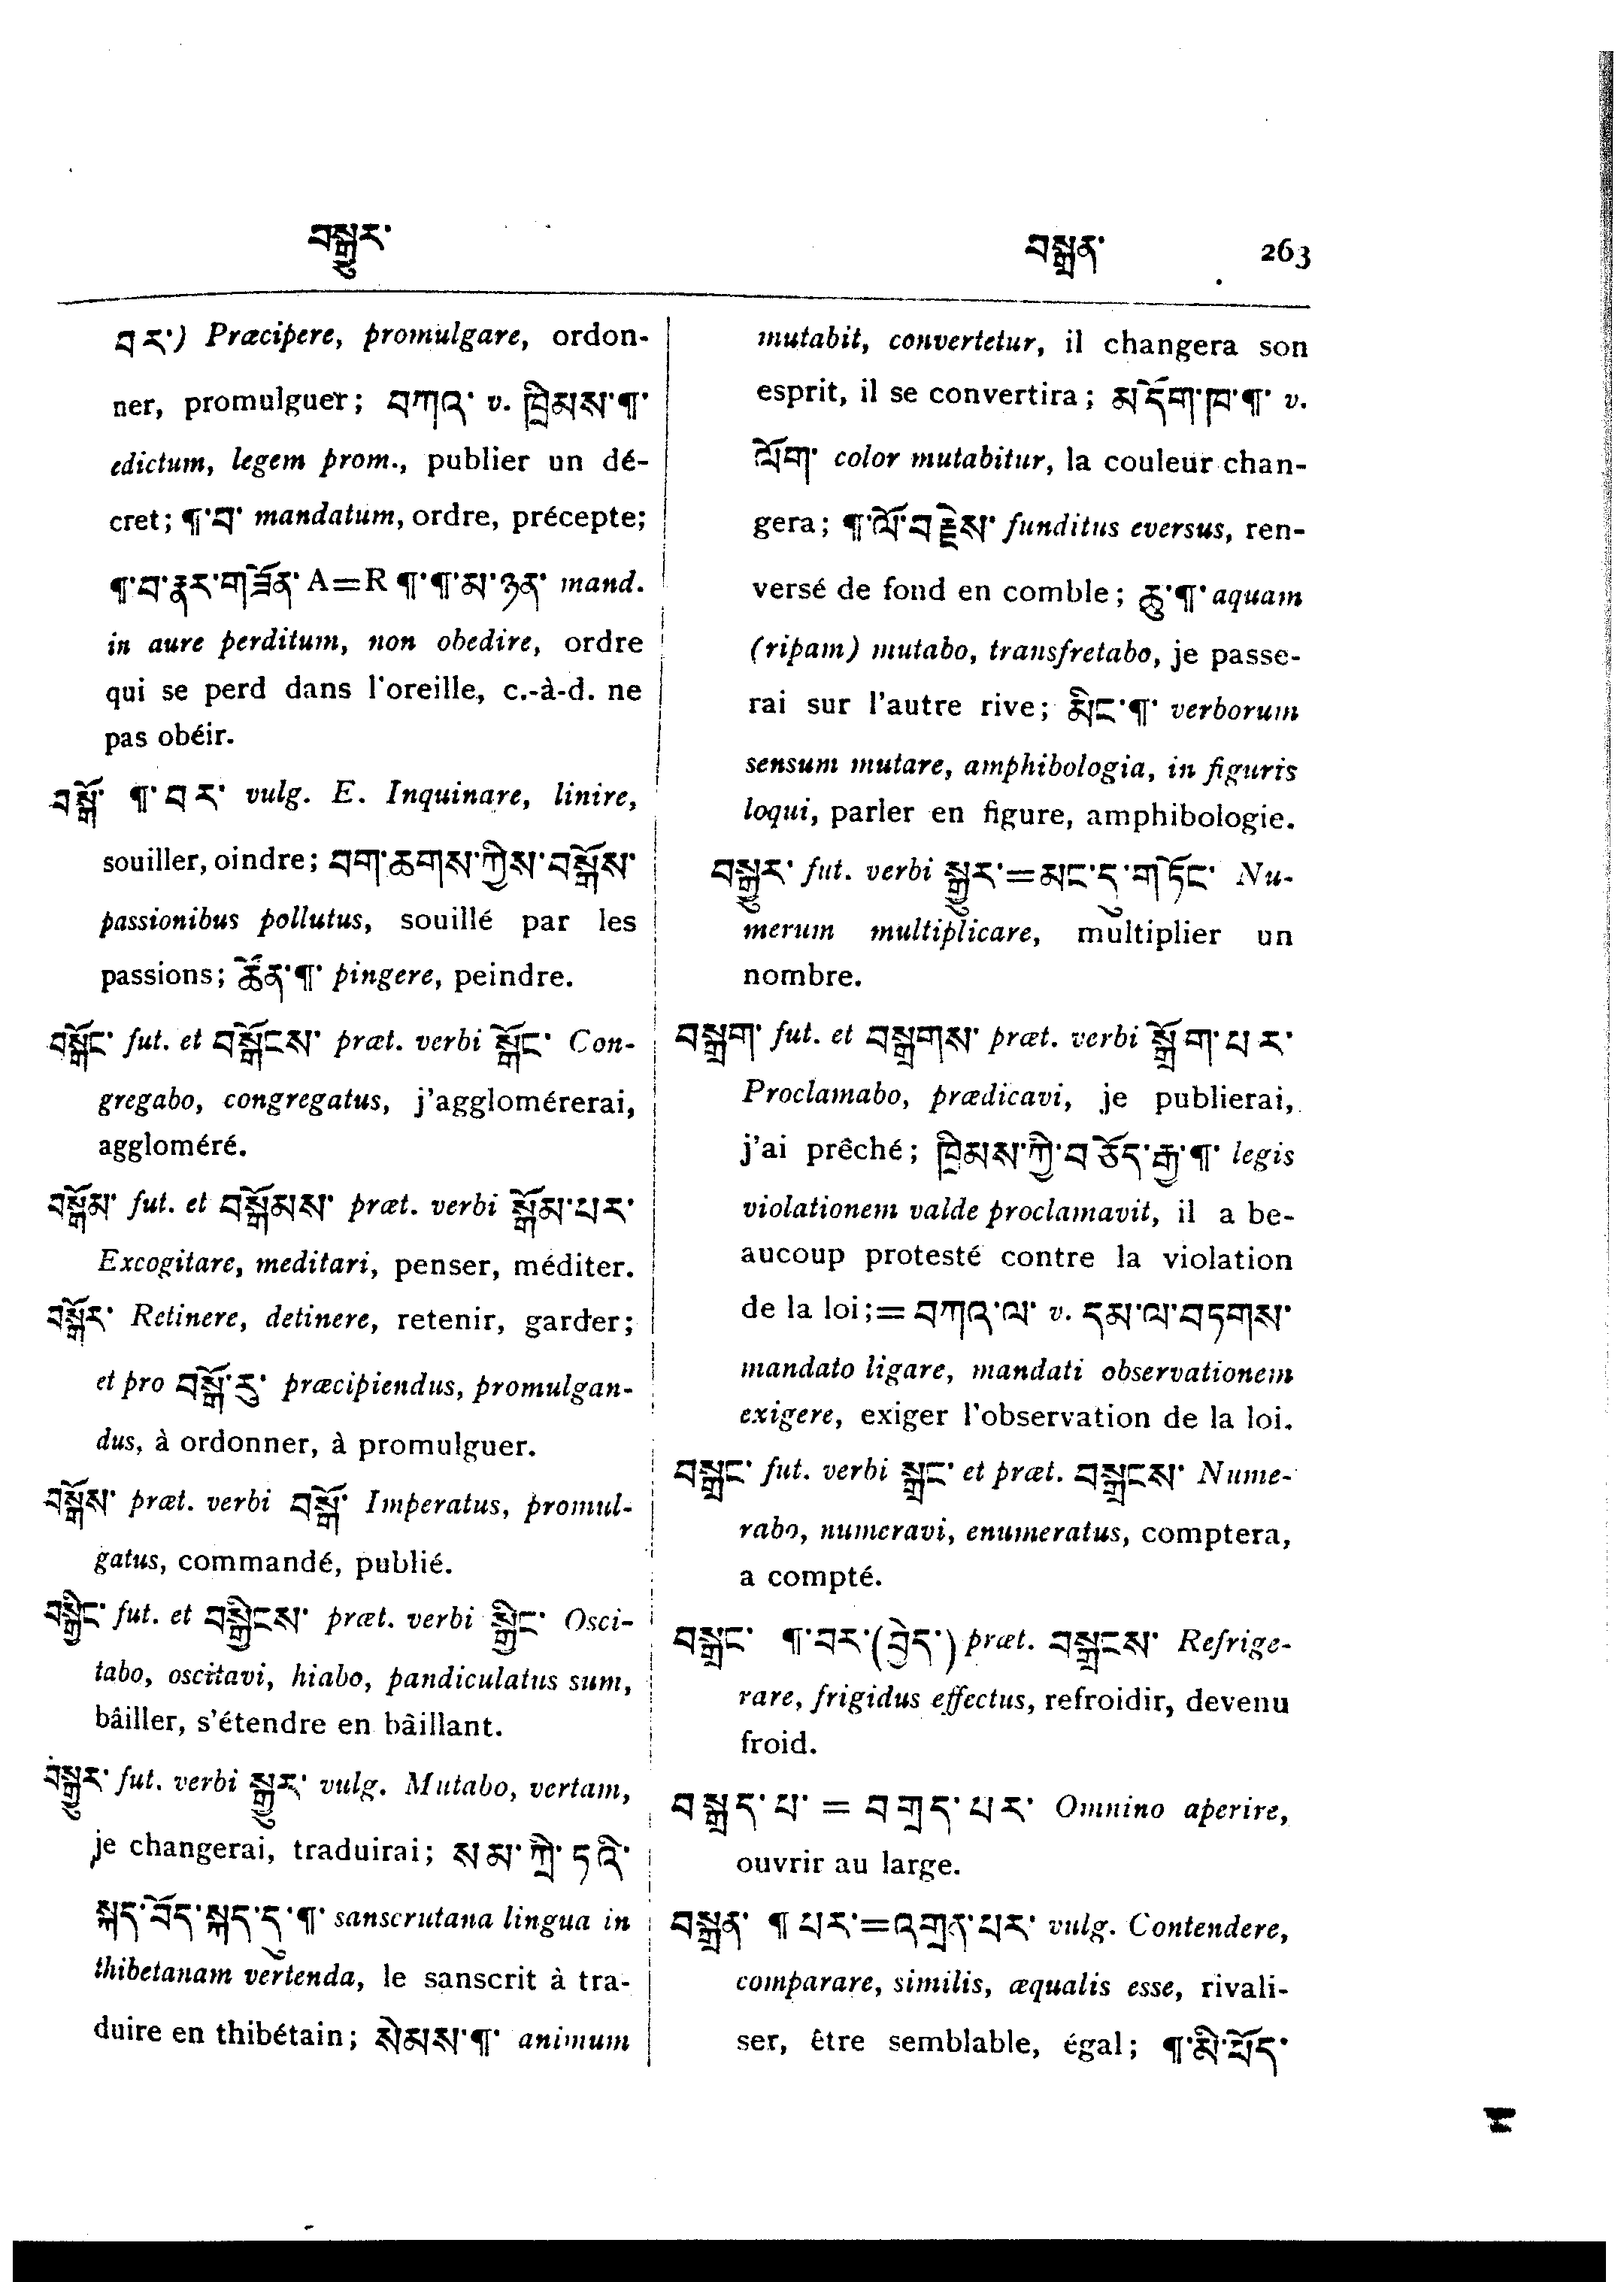 བསྒྱུར་
བསྒྲན་ 263
བར་) Præcipere, promulgare, ordon-
ner, promulguer; བཀའ་ v. ཁྲིམས་¶་
edictum, legem prom., publier un dé-
cret; ¶་བ་ mandatum, ordre, précepte;
¶་བ་རྣར་གཟོན་ A=R ¶་¶་མ་ཉན་ mand.
in aure perditum, non obedire, ordre
qui se perd dans l'oreille, c.-à-d. ne
pas obéir.
བསྒོ་ ¶་བར་ vulg. E. Inquinare, linire,
souiller, oindre; བག་ཆགས་ཀྱིས་བསྒོས་
passionibus pollutus, souillé par les
passions; ཚོན་¶་ pingere, peindre.
བསྒོང་ fut. et བསྒོངས་ præt. verbi སྒོང་ Con-
gregabo, congregatus, j'agglomérerai,
aggloméré.
བསྒོམ་ fut. et བསྒོམས་ præt. verbi སྒོམ་པར་
Excogitare, meditari, penser, méditer.
བསྒོར་ Retinere, detinere, retenir, garder;
et pro བསྒོ་རུ་ præcipiendus, promulgan-
dus, à ordonner, à promulguer.
བསྒོས་ præt. verbi བསྒོ་ Imperatus, promul-
gatus, commandé, publié.
བསྒྱིང་ fut. et བསྒྱིངས་ præt. verbi སྒྱིང་ Osci-
tabo, oscitavi, hiabo, pandiculatus sum,
bâiller, s'étendre en bâillant.
བསྒྱུར་ fut. verbi སྒྱུར་ vulg. Mutabo, vertam,
je changerai, traduirai; སམ་ཀྲེ་ཏའི་
སྐད་བོད་སྐད་དུ་¶་ sanscrutana lingua in
thibetanam vertenda, le sanscrit à tra-
duire en thibétain; སེམས་¶་ animum
mutabit, convertetur, il changera son
esprit, il se convertira; མདོག་ཁ་¶་ v.
ལོག་ color mutabitur, la couleur chan-
gera; ¶་ལོ་བརྗེས་ funditus eversus, ren-
versé de fond en comble; ཆུ་¶་ aquam
(ripam) mutabo, transfretabo, je passe-
rai sur l'autre rive; མིང་¶་ verborum
sensum mutare, amphibologia, in figuris
loqui, parler en figure, amphibologie.
བསྒྱུར་ fut. verbi སྒྱུར་=མང་དུ་གཏོང་ Nu-
merum multiplicare, multiplier un
nombre.
བསྒྲག་ fut. et བསྒྲགས་ præt. verbi སྒྲོག་པར་
Proclamabo, prædicavi, je publierai,
j'ai prêché; ཁྲིམས་ཀྱི་བཅོད་རྒྱ་¶་ legis
violationem valde proclamavit, il a be-
aucoup protesté contre la violation
de la loi;= བཀའ་ལ་ v. དམ་ལ་བཏགས་
mandato ligare, mandati observationem
exigere, exiger l'observation de la loi.
བསྒྲང་ fut. verbi སྒྲང་ et præt. བསྒྲངས་ Nume-
rabo, numeravi, enumeratus, comptera,
a compté.
བསྒྲང་ ¶་བར་(བྱེད་) præt. བསྒྲངས་ Refrige-
rare, frigidus effectus, refroidir, devenu
froid.
བསྒྲད་པ་ = བགྲད་པར་ Omnino aperire,
ouvrir au large.
བསྒྲན་ ¶ པར་=འགྲན་པར་ vulg. Contendere,
comparare, similis, æqualis esse, rivali-
ser, être semblable, égal; ¶་མི་ཕོད་